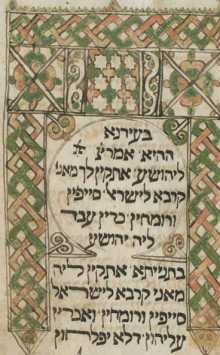 בעידנא
ההיא אמר יי
ליהושע אתקין לך מאני
קרבא לישראל סייפין
ורומחין כדין עבד
ליה יהושע
בתניתא אתקין ליה
מאני קרבא לישראל
סייפין ורומחין ואכריז
עליהון דלא יפלחון